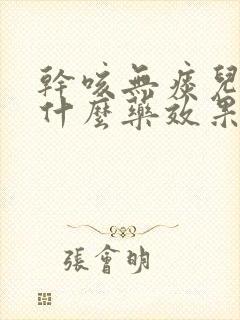 幹咳無痰兒
什麼藥效果
張會明